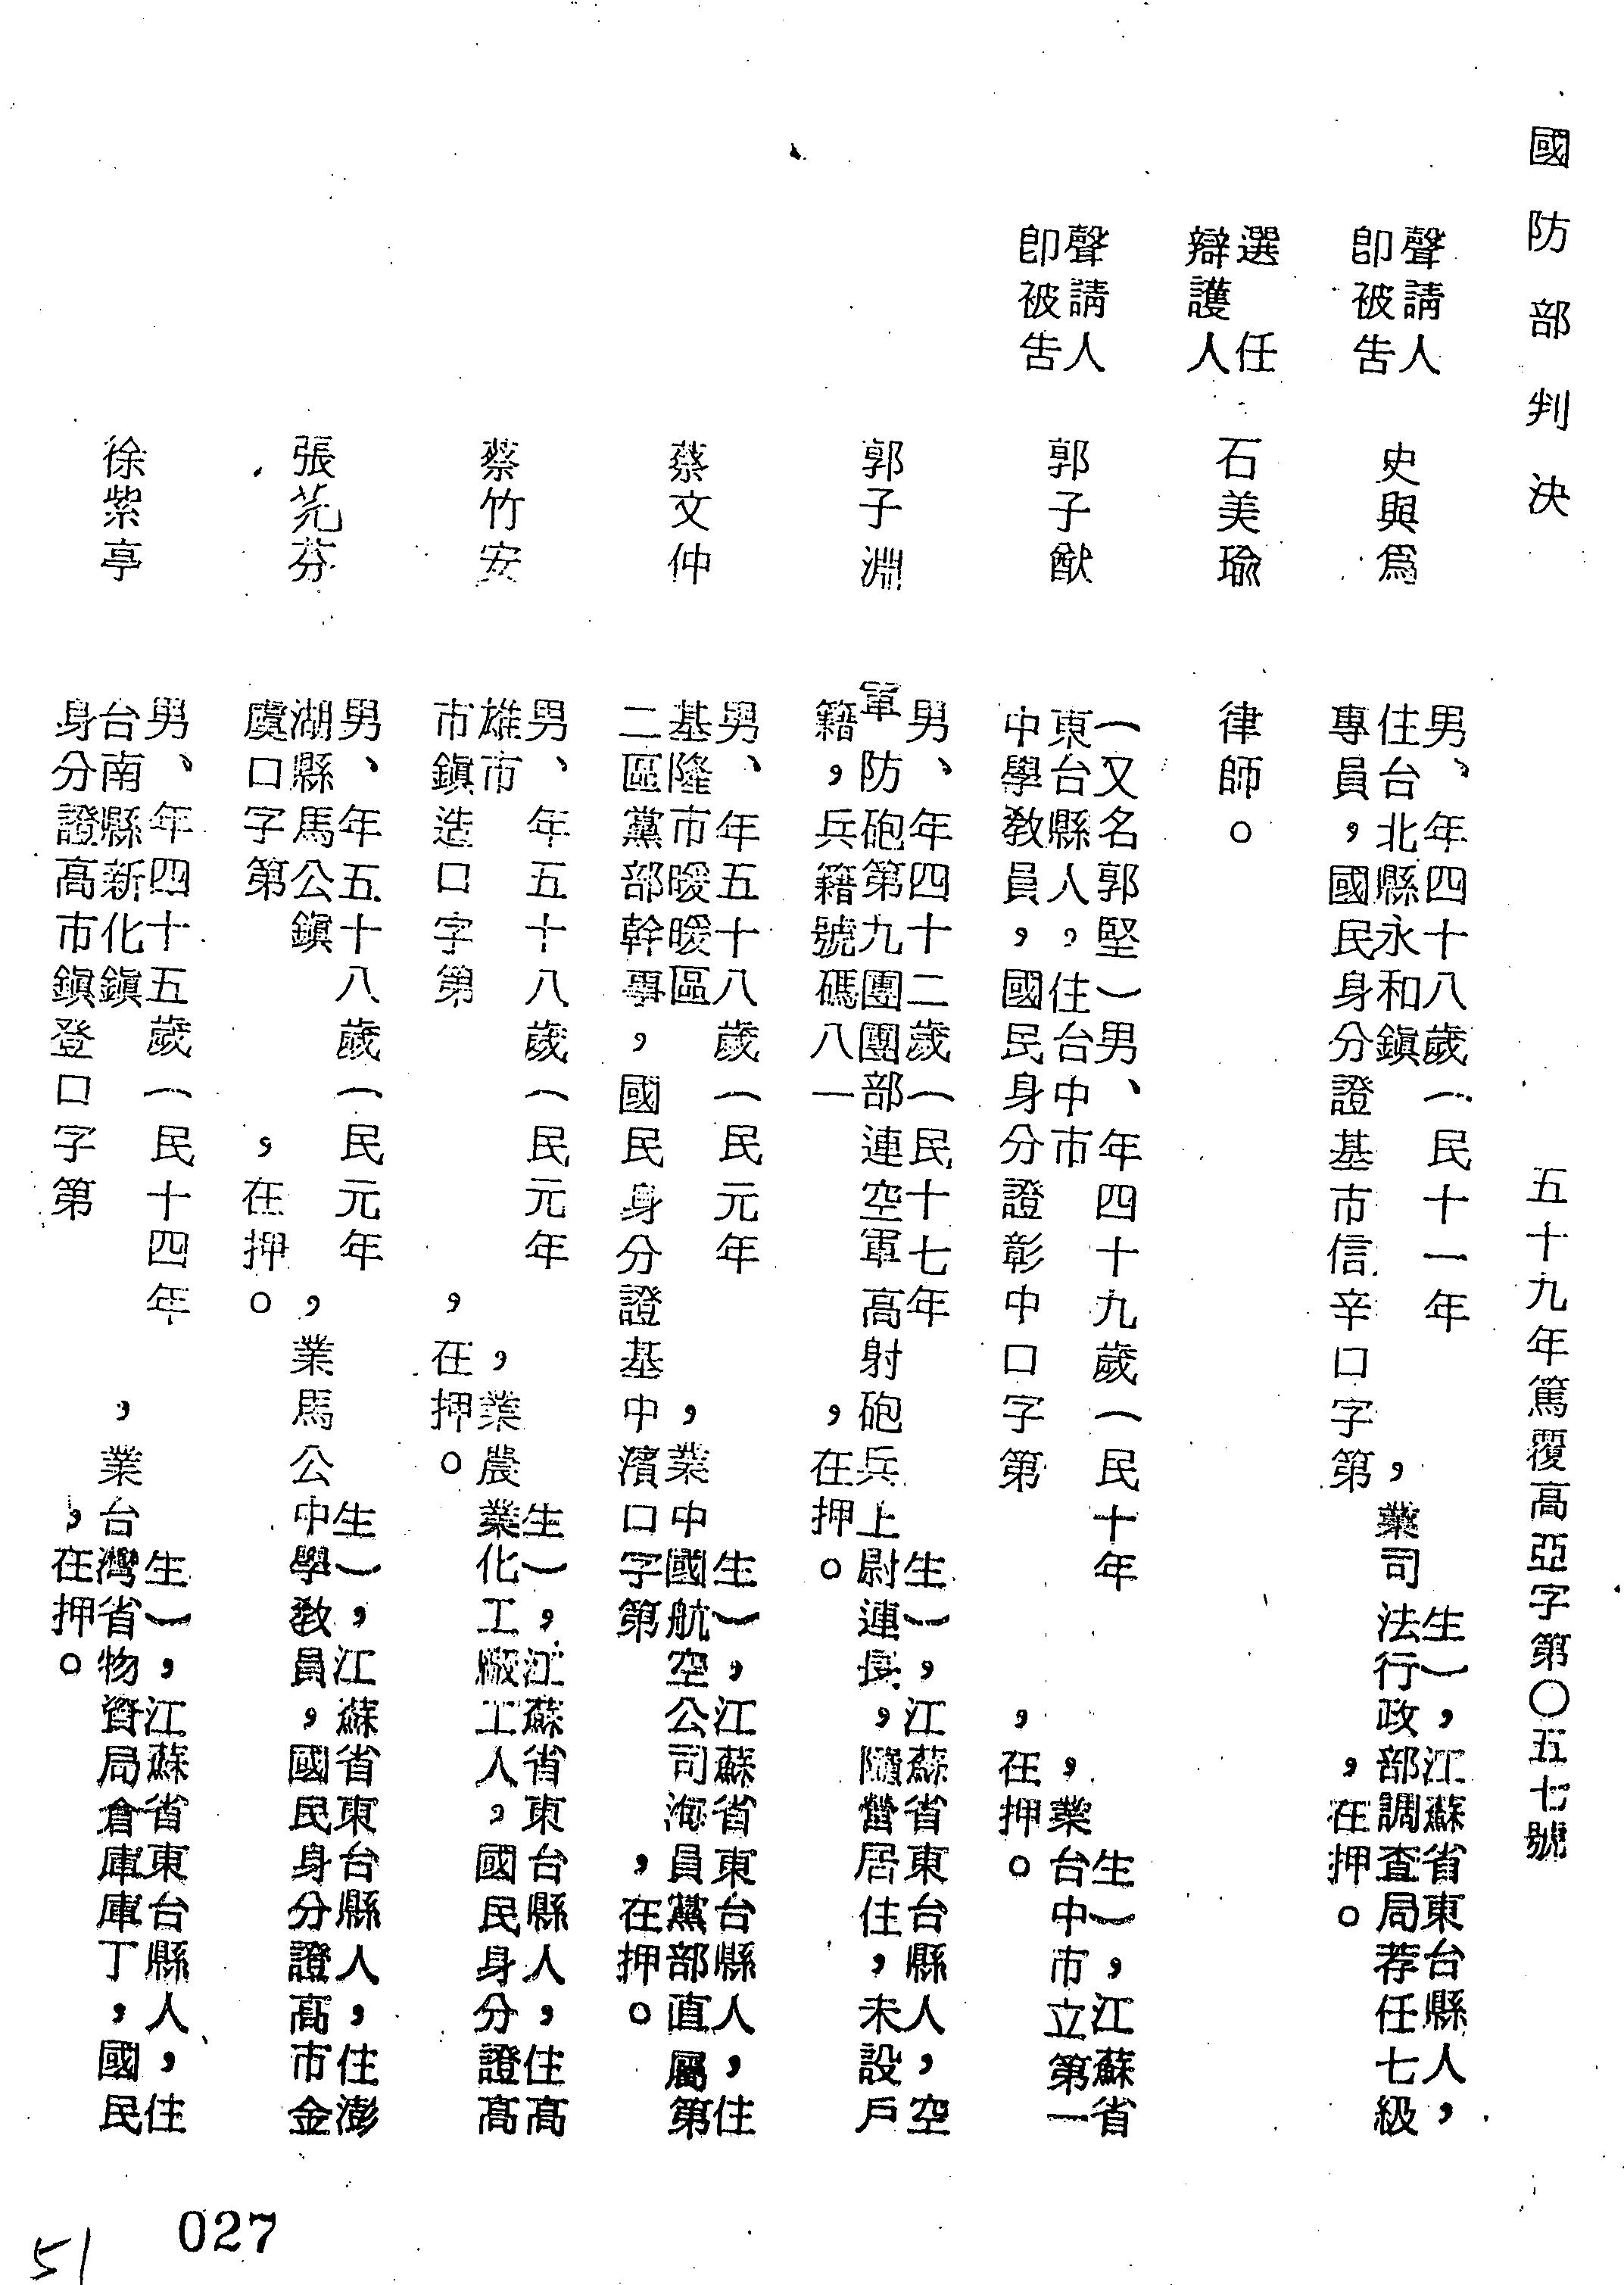 國防部判決
五十九年篤覆高亞字第〇五七號
聲請人
即被告
史與爲
男、年四十八歲（民十一年　生），江蘇省東台縣人，
住台北縣永和鎭　，業司法行政部調查局荐任七級
專員，國民身分證基市信辛口字第　，在押。
選任
辯護人
石美瑜
律師。
聲請人
即被告
郭子猷
（又名郭堅）男、年四十九歲（民十年　生），江蘇省
東台縣人，住台中市　，業台中市立第一
中學教員，國民身分證彰中口字第　，在押。
郭子淵
男、年四十二歲（民十七年　生），江蘇省東台縣人，空
軍防砲第九團團部連空軍高射砲兵上尉連長，隨營居住，未設戶
籍，兵籍號碼八一　，在押。
蔡文仲
男、年五十八歲（民元年　生），江蘇省東台縣人，住
基隆市暖暖區　，業中國航空公司海員黨部直屬第
二區黨部幹事，國民身分證基中濱口字第　，在押。
蔡竹安
男、年五十八歲（民元年　生），江蘇省東台縣人，住高
雄市　，業農業化工廠工人，國民身分證高
市鎭造口字第　，在押。
張芫芬
男、年五十八歲（民元年　生），江蘇省東台縣人，住澎
湖縣馬公鎭　，業馬公中學教員，國民身分證高市金
虞口字第　，在押。
徐紫亭
男、年四十五歲（民十四年　生），江蘇省東台縣人，住
台南縣新化鎭　，業台灣省物資局倉庫庫丁，國民
身分證高市鎭登口字第　，在押。
027
51